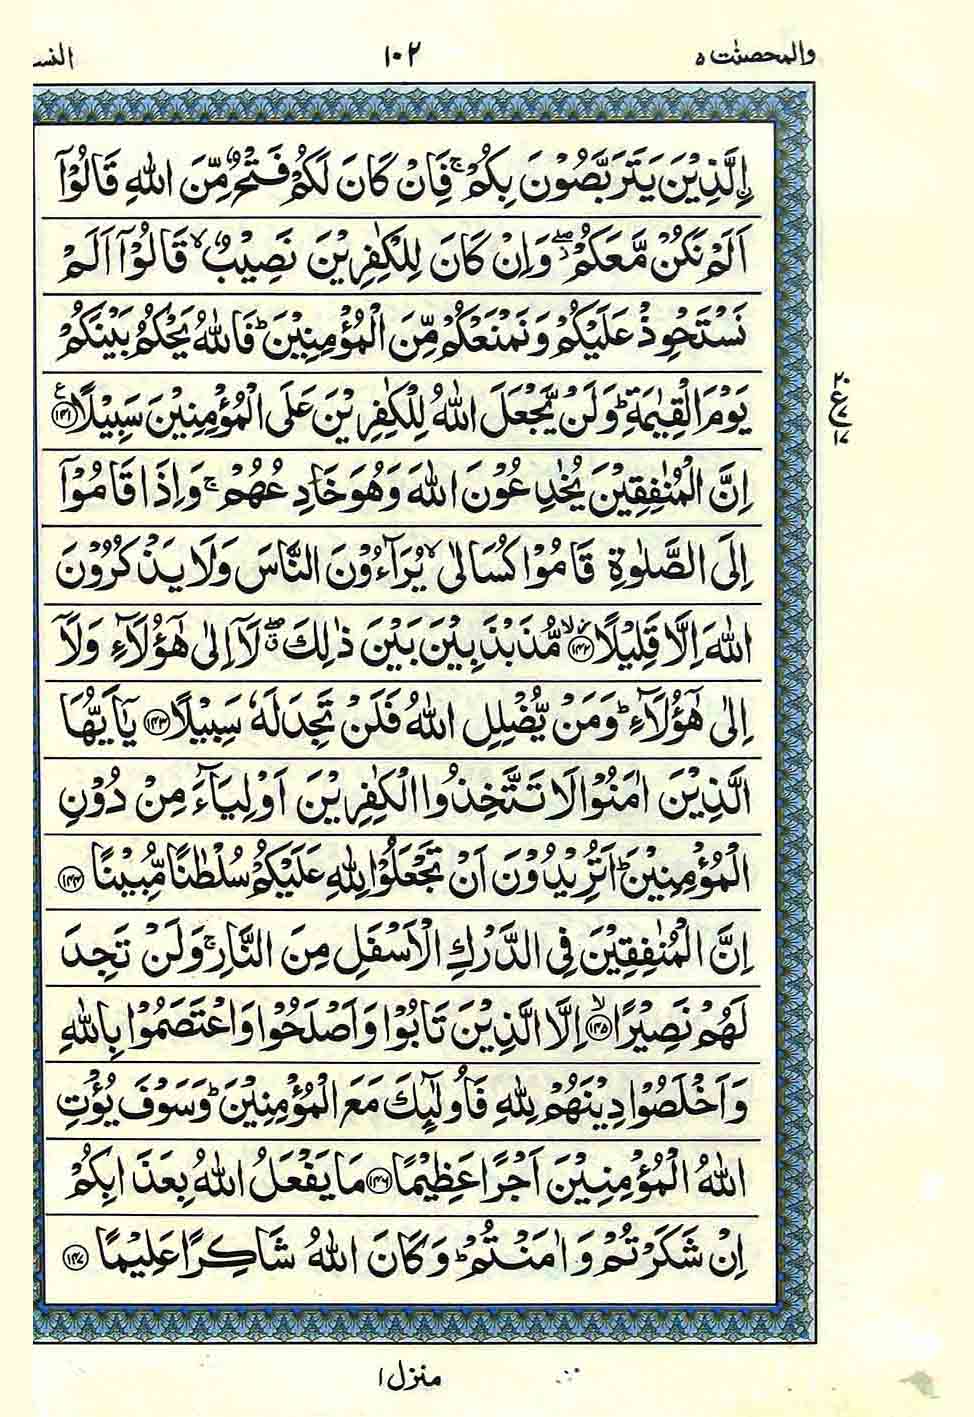 والمحصنٰت ٥
١٠٢
النس
اِلَّذِيْنَ يَتَرَبَّصُوْنَ بِكُمْ ۚ فَاِنْ كَانَ لَكُمْ فَتْحٌ مِّنَ اللّٰهِ قَالُوْۤا
اَلَمْ نَكُنْ مَّعَكُمْ ۖ وَاِنْ كَانَ لِلْكٰفِرِيْنَ نَصِيْبٌ ۙ قَالُوْۤا اَلَمْ
نَسْتَحْوِذْ عَلَيْكُمْ وَنَمْنَعْكُمْ مِّنَ الْمُؤْمِنِيْنَ ؕ فَاللّٰهُ يَحْكُمُ بَيْنَكُمْ
يَوْمَ الْقِيٰمَةِ ؕ وَلَنْ يَّجْعَلَ اللّٰهُ لِلْكٰفِرِيْنَ عَلَى الْمُؤْمِنِيْنَ سَبِيْلًا ﴿١٤١﴾ ع
٢٠
ع ٧
١٧
اِنَّ الْمُنٰفِقِيْنَ يُخٰدِعُوْنَ اللّٰهَ وَهُوَ خَادِعُهُمْ ۚ وَاِذَا قَامُوْۤا
اِلَى الصَّلٰوةِ قَامُوْا كُسَالٰى ۙ يُرَآءُوْنَ النَّاسَ وَلَا يَذْكُرُوْنَ
اللّٰهَ اِلَّا قَلِيْلًا ﴿١٤٢﴾ۙ مُّذَبْذَبِيْنَ بَيْنَ ذٰلِكَ ۖ لَاۤ اِلٰى هٰۤؤُلَآءِ وَلَاۤ
اِلٰى هٰۤؤُلَآءِ ؕ وَمَنْ يُّضْلِلِ اللّٰهُ فَلَنْ تَجِدَ لَهٗ سَبِيْلًا ﴿١٤٣﴾ يٰۤاَيُّهَا
الَّذِيْنَ اٰمَنُوْا لَا تَتَّخِذُوا الْكٰفِرِيْنَ اَوْلِيَآءَ مِنْ دُوْنِ
الْمُؤْمِنِيْنَ ؕ اَتُرِيْدُوْنَ اَنْ تَجْعَلُوْا لِلّٰهِ عَلَيْكُمْ سُلْطٰنًا مُّبِيْنًا ﴿١٤٤﴾
اِنَّ الْمُنٰفِقِيْنَ فِى الدَّرْكِ الْاَسْفَلِ مِنَ النَّارِ ۚ وَلَنْ تَجِدَ
لَهُمْ نَصِيْرًا ﴿١٤٥﴾ۙ اِلَّا الَّذِيْنَ تَابُوْا وَاَصْلَحُوْا وَاعْتَصَمُوْا بِاللّٰهِ
وَاَخْلَصُوْا دِيْنَهُمْ لِلّٰهِ فَاُولٰٓئِكَ مَعَ الْمُؤْمِنِيْنَ ؕ وَسَوْفَ يُؤْتِ
اللّٰهُ الْمُؤْمِنِيْنَ اَجْرًا عَظِيْمًا ﴿١٤٦﴾ مَا يَفْعَلُ اللّٰهُ بِعَذَابِكُمْ
اِنْ شَكَرْتُمْ وَاٰمَنْتُمْ ؕ وَكَانَ اللّٰهُ شَاكِرًا عَلِيْمًا ﴿١٤٧﴾
منزل ١